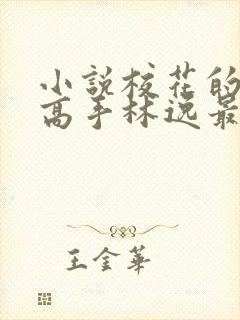 小説校花的
高手林逸最
王金華